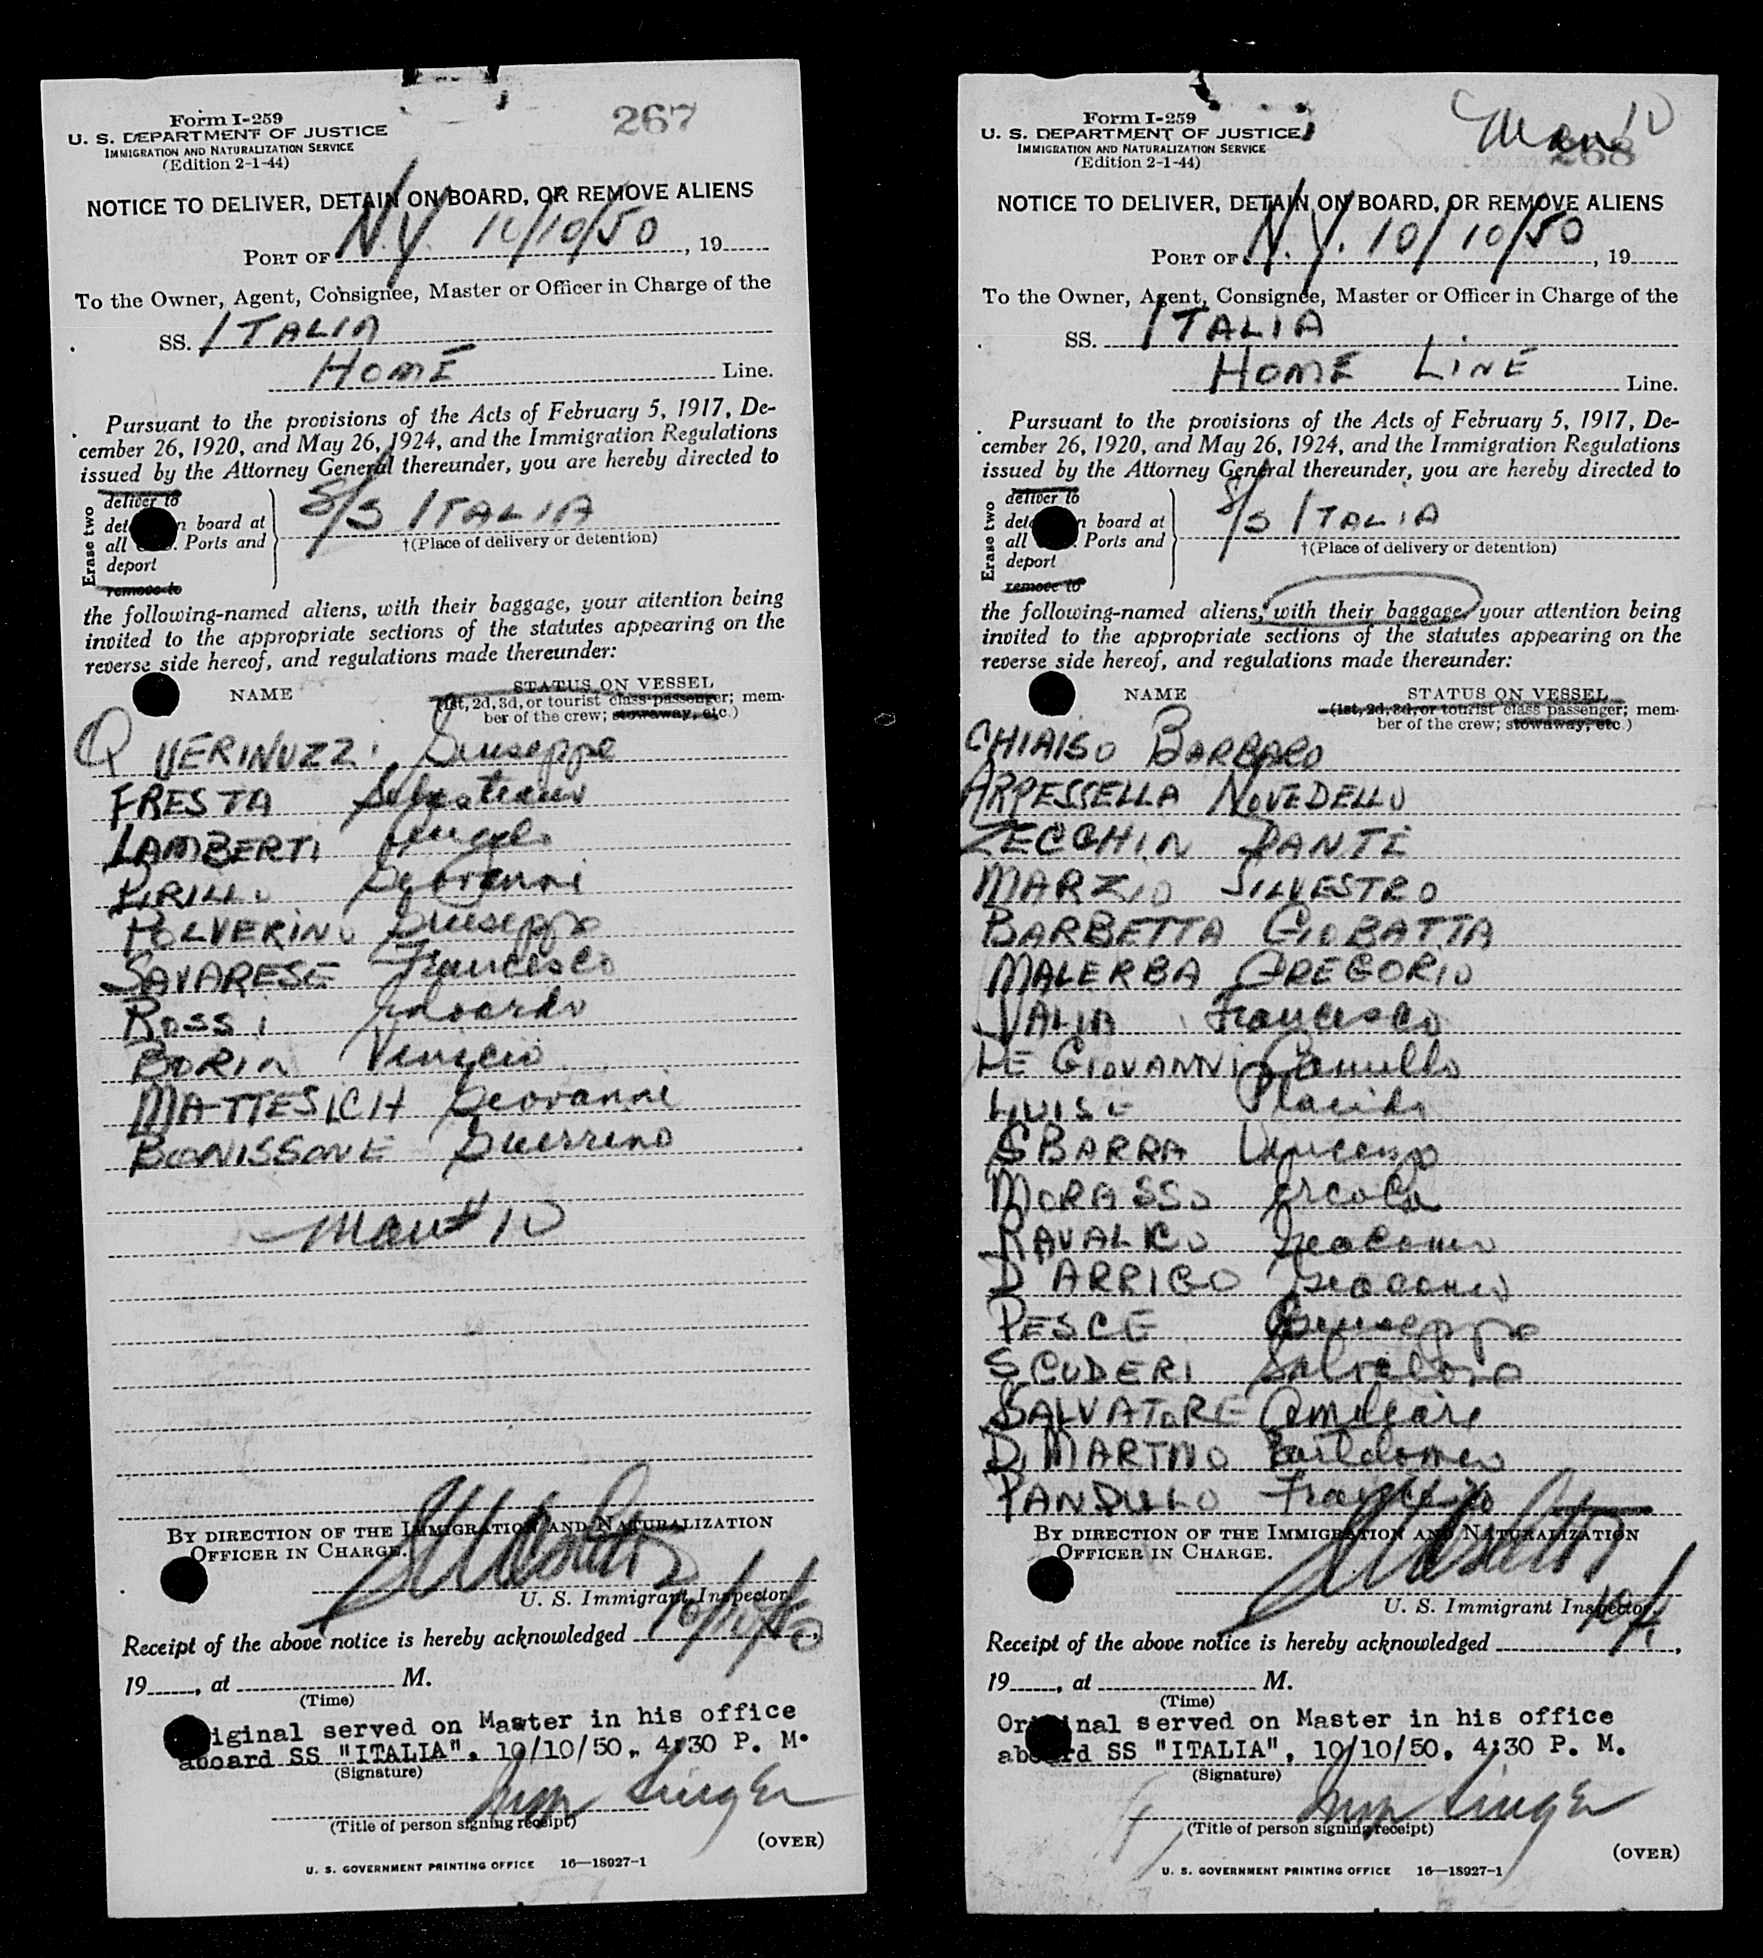 Form I-259
U. S. DEPARTMENT OF JUSTICE
IMMIGRATION AND NATURALIZATION SERVICE
(Edition 2-1-44)
267
NOTICE TO DELIVER, DETAIN ON BOARD, OR REMOVE ALIENS
PORT OF N.Y. 10/10/50, 19
To the Owner, Agent, Consignee, Master or Officer in Charge of the
SS. ITALIA
HOME Line.
Pursuant to the provisions of the Acts of February 5, 1917, De-
cember 26, 1920, and May 26, 1924, and the Immigration Regulations
issued by the Attorney General thereunder, you are hereby directed to
Erase two
deliver to
board at
all Ports and
deport
remove to
S/S ITALIA
†(Place of delivery or detention)
the following-named aliens, with their baggage, your attention being
invited to the appropriate sections of the statutes appearing on the
reverse side hereof, and regulations made thereunder:
NAME STATUS ON VESSEL
(1st, 2d, 3d, or tourist class passenger; mem-
ber of the crew; stowaway, etc.)
VERINUZZI Giuseppe
FRESTA Sebastiano
LAMBERTI Angelo
PIRILLO Giovanni
POLVERINO Giuseppe
SAVARESE Francesco
ROSSI Edoardo
BORIN Vinicio
MATTESICH Giovanni
BONISSONE Guerrino
10
BY DIRECTION OF THE IMMIGRATION AND NATURALIZATION
OFFICER IN CHARGE.
U. S. Immigrant Inspector.
Receipt of the above notice is hereby acknowledged 10/10/50,
19, at M.
(Time)
iginal served on Master in his office
aboard SS "ITALIA", 10/10/50, 4:30 P. M.
(Signature)
Singer
(Title of person signing receipt)
(OVER)
U. S. GOVERNMENT PRINTING OFFICE 16—18927-1
Form I-259
U. S. DEPARTMENT OF JUSTICE
IMMIGRATION AND NATURALIZATION SERVICE
(Edition 2-1-44)
10
268
NOTICE TO DELIVER, DETAIN ON BOARD, OR REMOVE ALIENS
PORT OF N.Y. 10/10/50, 19
To the Owner, Agent, Consignee, Master or Officer in Charge of the
SS. ITALIA
HOME LINE Line.
Pursuant to the provisions of the Acts of February 5, 1917, De-
cember 26, 1920, and May 26, 1924, and the Immigration Regulations
issued by the Attorney General thereunder, you are hereby directed to
Erase two
deliver to
board at
all Ports and
deport
remove to
S/S ITALIA
†(Place of delivery or detention)
the following-named aliens, with their baggage, your attention being
invited to the appropriate sections of the statutes appearing on the
reverse side hereof, and regulations made thereunder:
NAME STATUS ON VESSEL
(1st, 2d, 3d, or tourist class passenger; mem-
ber of the crew; stowaway, etc.)
CHIAISO BARBARO
ARPESSELLA NOVEDELLO
ZECCHIN DANTE
MARZIO SILVESTRO
BARBETTA GIOBATTA
MALERBA GREGORIO
VALIA Francesco
DE GIOVANNI Camillo
LUISE Placido
SBARRA Vincenzo
MORASSO Ercole
RAVALICO Giacomo
D'ARRIGO Giacomo
PESCE Giuseppe
SCUDERI Salvatore
SALVATORE Amilcare
DI MARTINO Bartolomeo
PANDULLO Francesco
BY DIRECTION OF THE IMMIGRATION AND NATURALIZATION
OFFICER IN CHARGE.
U. S. Immigrant Inspector.
Receipt of the above notice is hereby acknowledged ,
19, at M.
(Time)
Original served on Master in his office
aboard SS "ITALIA", 10/10/50, 4:30 P. M.
(Signature)
Singer
(Title of person signing receipt)
(OVER)
U. S. GOVERNMENT PRINTING OFFICE 16—18927-1